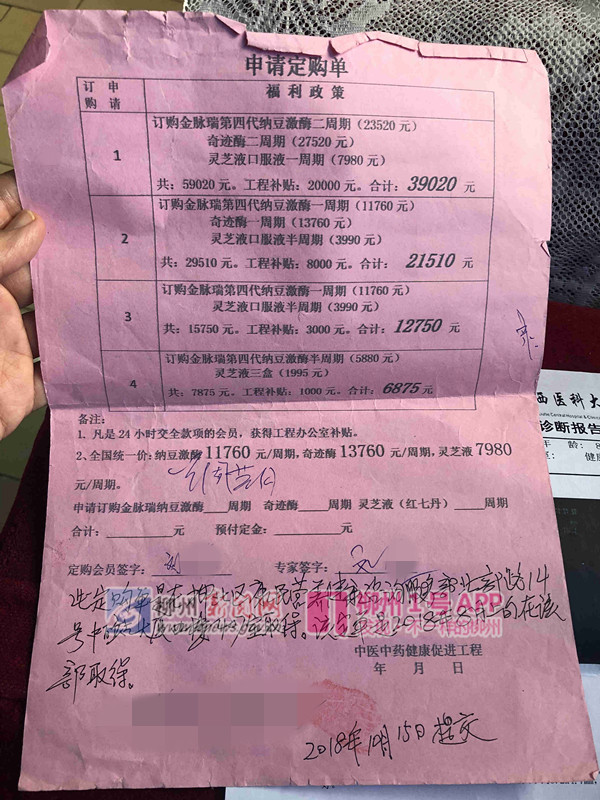 申请定购单
订购 申请 福利政策
1
订购金脉瑞第四代纳豆激酶二周期（23520 元）
奇迹酶二周期（27520 元）
灵芝液口服液一周期（7980 元）
共：59020 元。工程补贴：20000 元。合计：39020 元
2
订购金脉瑞第四代纳豆激酶一周期（11760 元）
奇迹酶一周期（13760 元）
灵芝液口服液半周期（3990 元）
共：29510 元。工程补贴：8000 元。合计：21510 元
3
订购金脉瑞第四代纳豆激酶一周期（11760 元）
灵芝液口服液半周期（3990 元）
共：15750 元。工程补贴：3000 元。合计：12750 元
4
订购金脉瑞第四代纳豆激酶半周期（5880 元）
灵芝液三盒（1995 元）
共：7875 元。工程补贴：1000 元。合计：6875 元
备注：
1. 凡是 24 小时交全款项的会员，获得工程办公室补贴。
2、全国统一价：纳豆激酶 11760 元/周期，奇迹酶 13760 元/周期，灵芝液 7980
元/周期。
申请订购金脉瑞纳豆激酶____周期 奇迹酶____周期 灵芝液（红七丹）____周期
合计：________元 预付定金：________元
定购会员签字： 专家签字：
柳州新闻网 柳州1号APP
号中
2018年
在该
部取得。
中医中药健康促进工程
年 月 日
2018年10月15日提交
西医科大
诊断报告
年 龄：